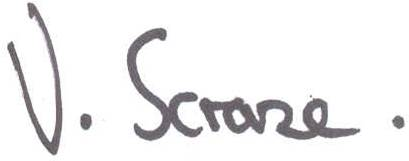 V. Scraze.